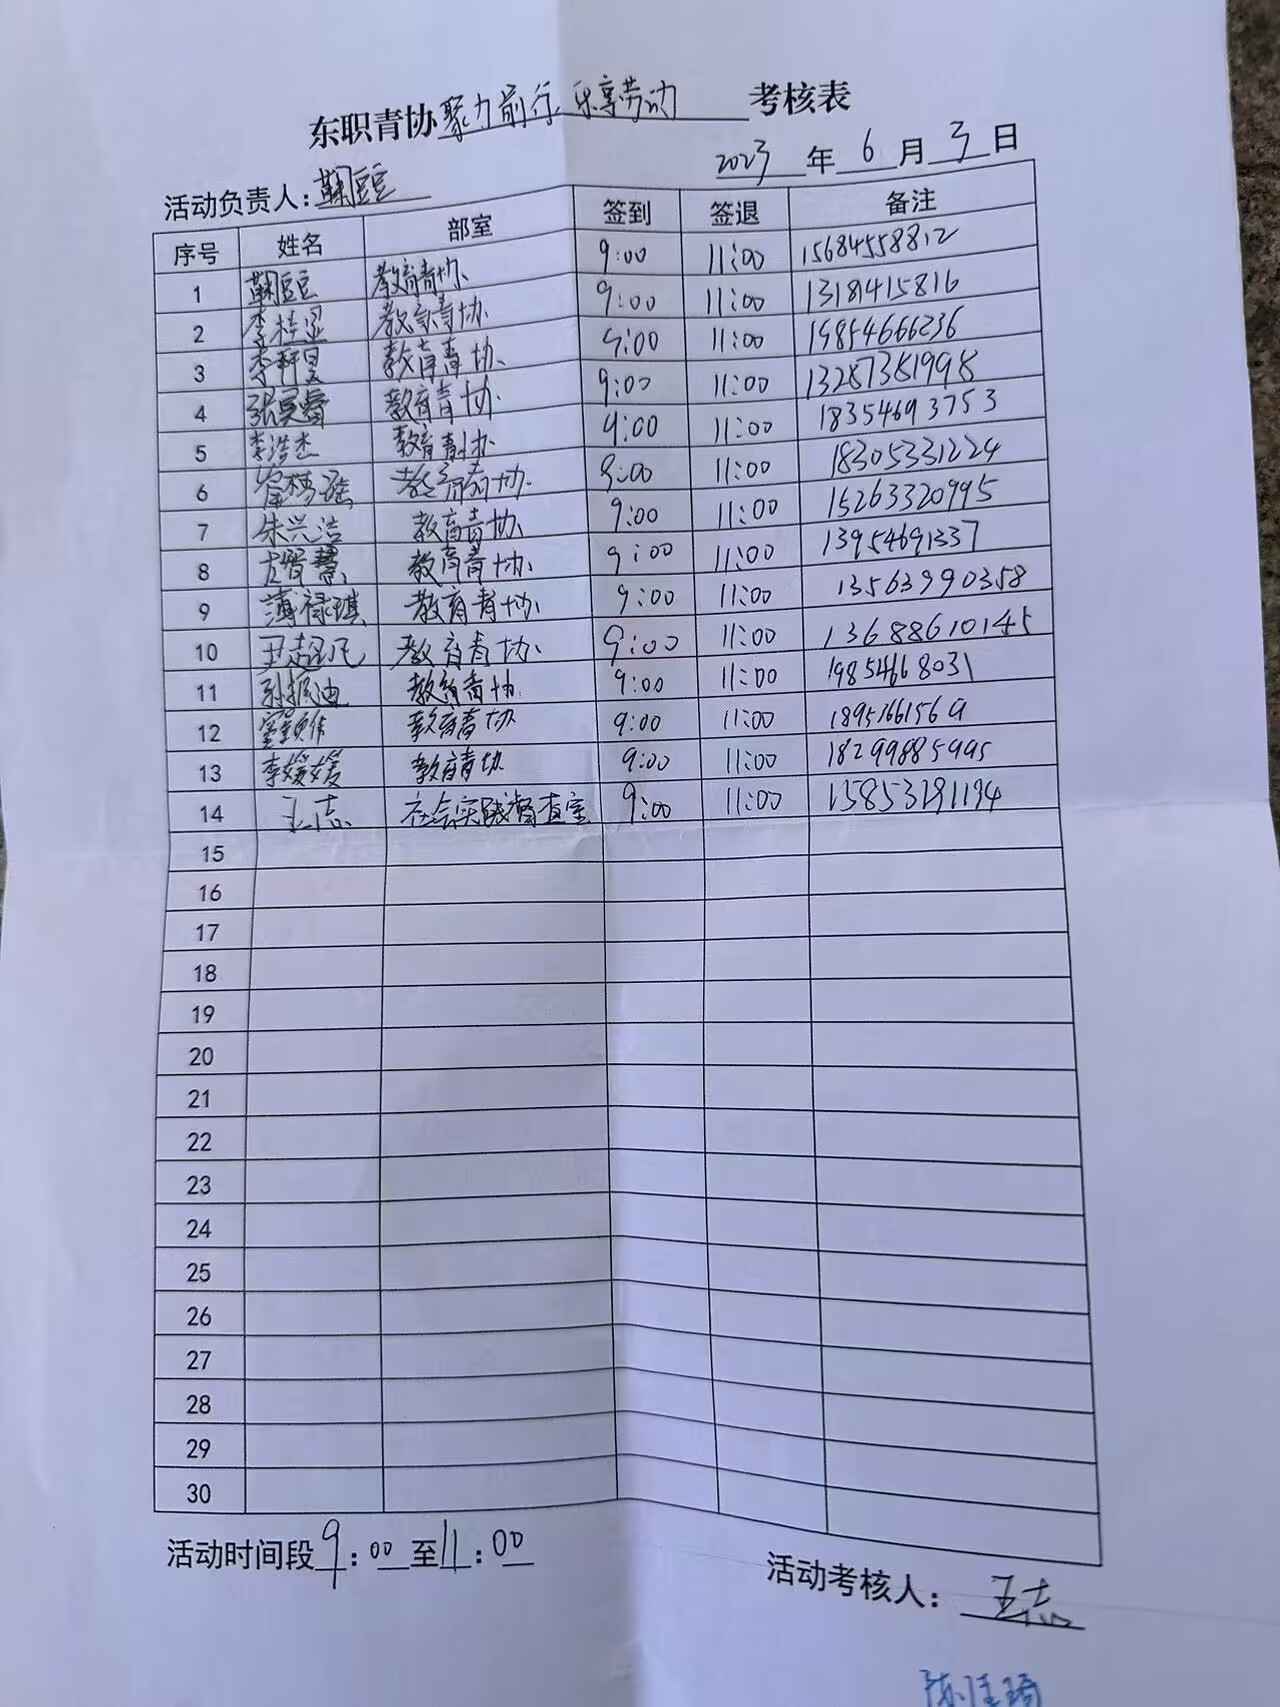 东职青协聚力前行 乐享劳动考核表
2023年6月3日
活动负责人:鞠豆豆
序号 姓名 部室 签到 签退 备注
1 鞠豆豆 教育青协 9:00 11:00 15684558812
2 教育青协 9:00 11:00 13181415816
3 教育青协 9:00 11:00 19854666236
4 教育青协 9:00 11:00 13287381998
5 李浩杰 教育青协 9:00 11:00 18354693753
6 教育青协 9:00 11:00 18305331224
7 朱兴洁 教育青协 9:00 11:00 15263320995
8 教育青协 9:00 11:00 13954691337
9 薄禄琪 教育青协 9:00 11:00 13563990358
10 尹超凡 教育青协 9:00 11:00 13688610145
11 孙振迪 教育青协 9:00 11:00 19854668031
12 教育青协 9:00 11:00 18953661569
13 李媛媛 教育青协 9:00 11:00 18299885995
14 王志 社会实践督查室 9:00 11:00 15853291194
15
16
17
18
19
20
21
22
23
24
25
26
27
28
29
30
活动时间段9:00至11:00
活动考核人:王志